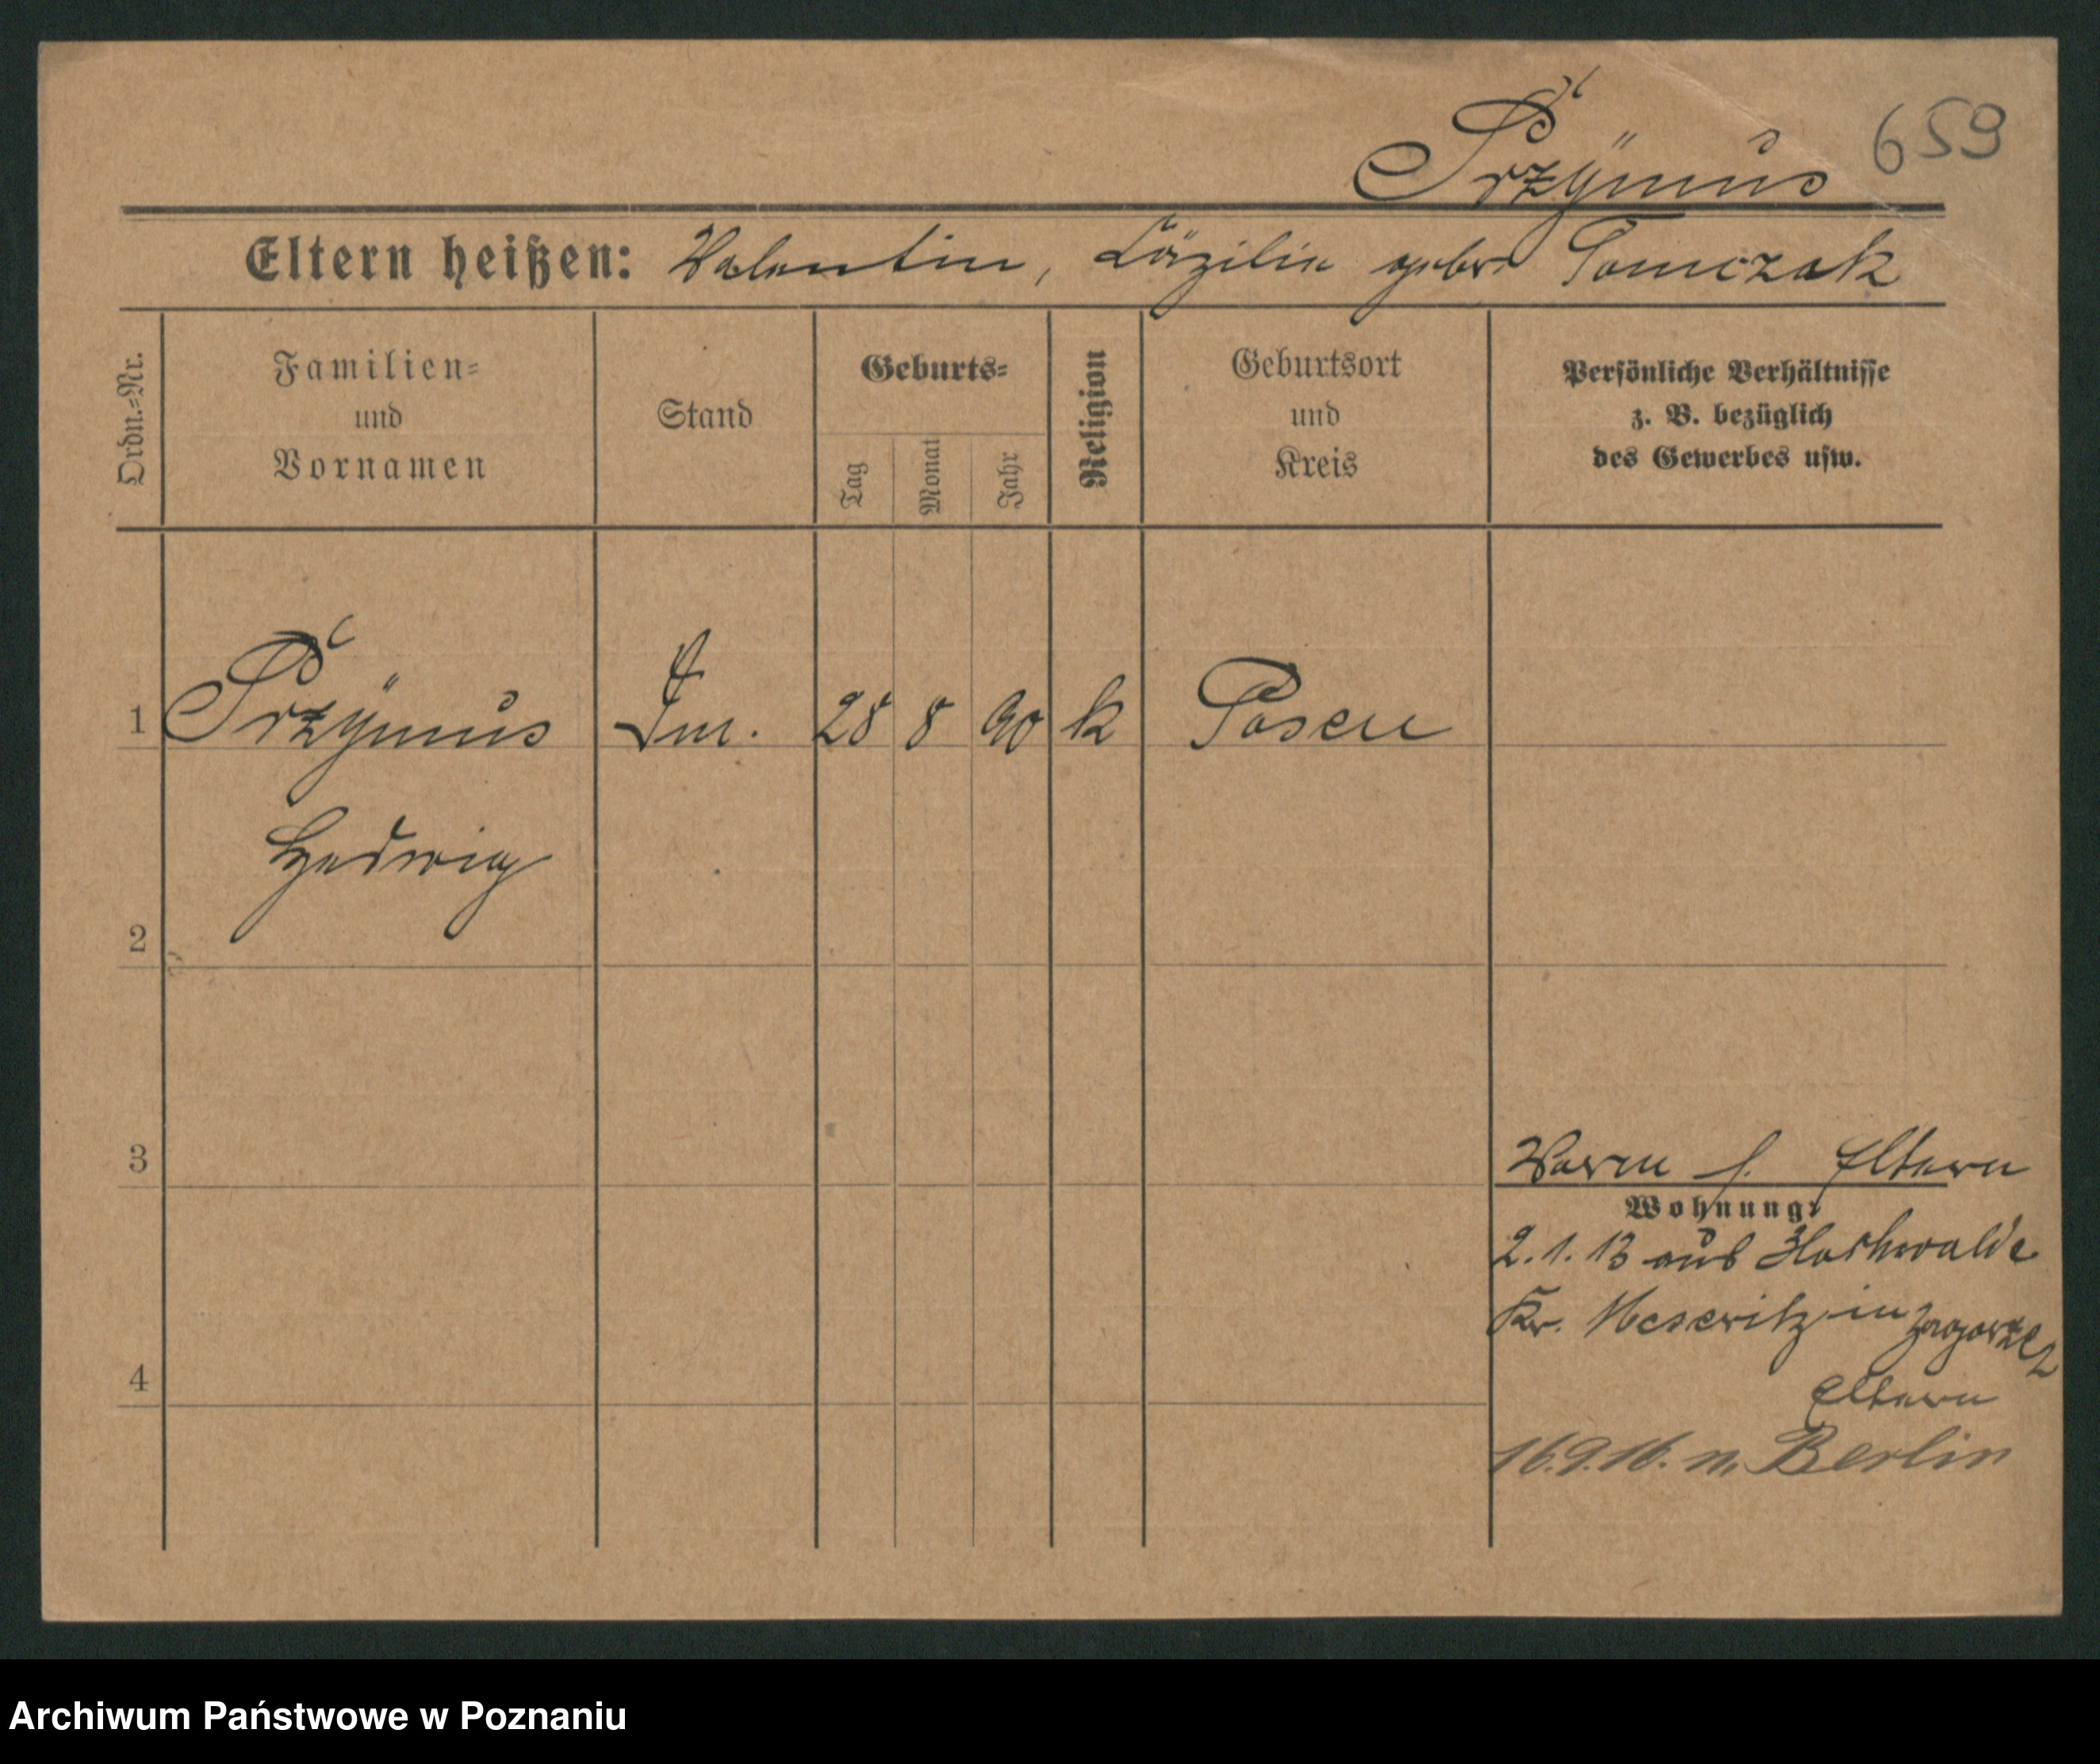 659
Przÿmus
Eltern heißen: Valentin, Cäzilie gebor. Tomczak
Ordn.-Nr.
Familien-
und
Vornamen
Stand
Geburts-
Tag
Monat
Jahr
Religion
Geburtsort
und
Kreis
Persönliche Verhältnisse
z. B. bezüglich
des Gewerbes usw.
1 Przÿmus 28 8 90 k Posen
Hedwig
2
3
Eltern
Wohnung:
2.1.13 aus
Kr. Meseritz in
4
Eltern
16.9.16. n. Berlin
Archiwum Państwowe w Poznaniu